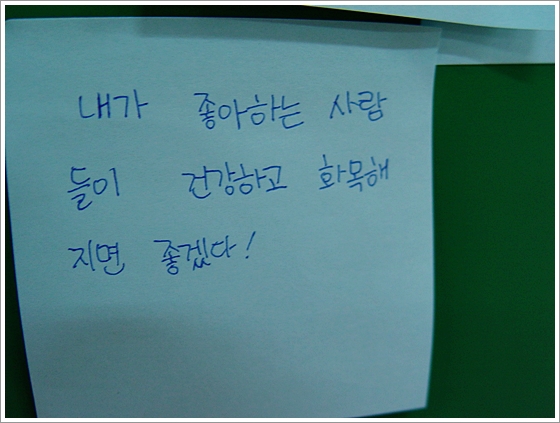 내가 좋아하는 사람
들이 건강하고 화목해
지면 좋겠다!